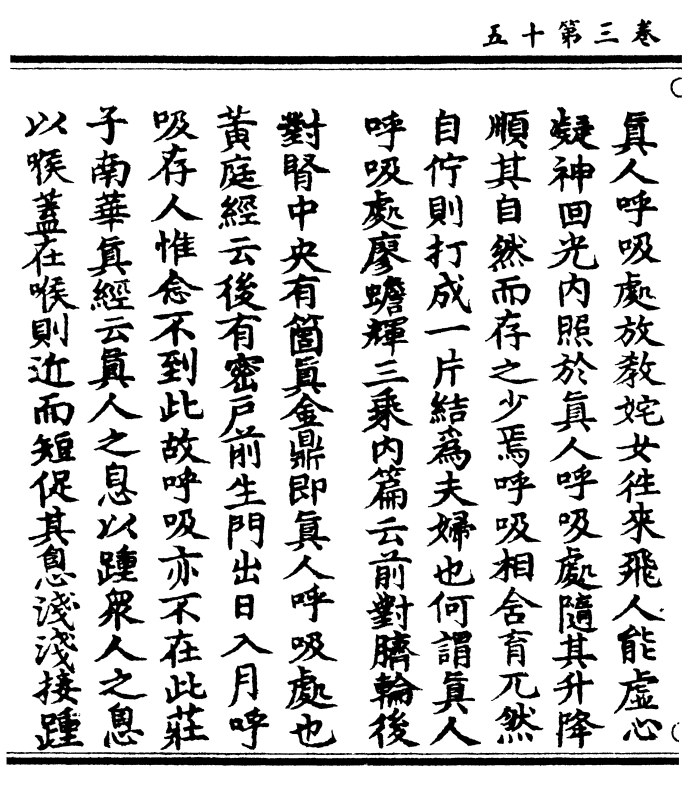 五十第三卷
真人呼吸處放教姹女往來飛人能虛心
凝神回光內照於真人呼吸處隨其升降
順其自然而存之少焉呼吸相含育兀然
自佇則打成一片結為夫婦也何謂真人
呼吸處廖蟾輝三乘內篇云前對臍輪後
對腎中央有箇真金鼎即真人呼吸處也
黃庭經云後有密戶前生門出日入月呼
吸存人惟念不到此故呼吸亦不在此莊
子南華真經云真人之息以踵衆人之息
以喉蓋在喉則近而短促其息淺淺接踵